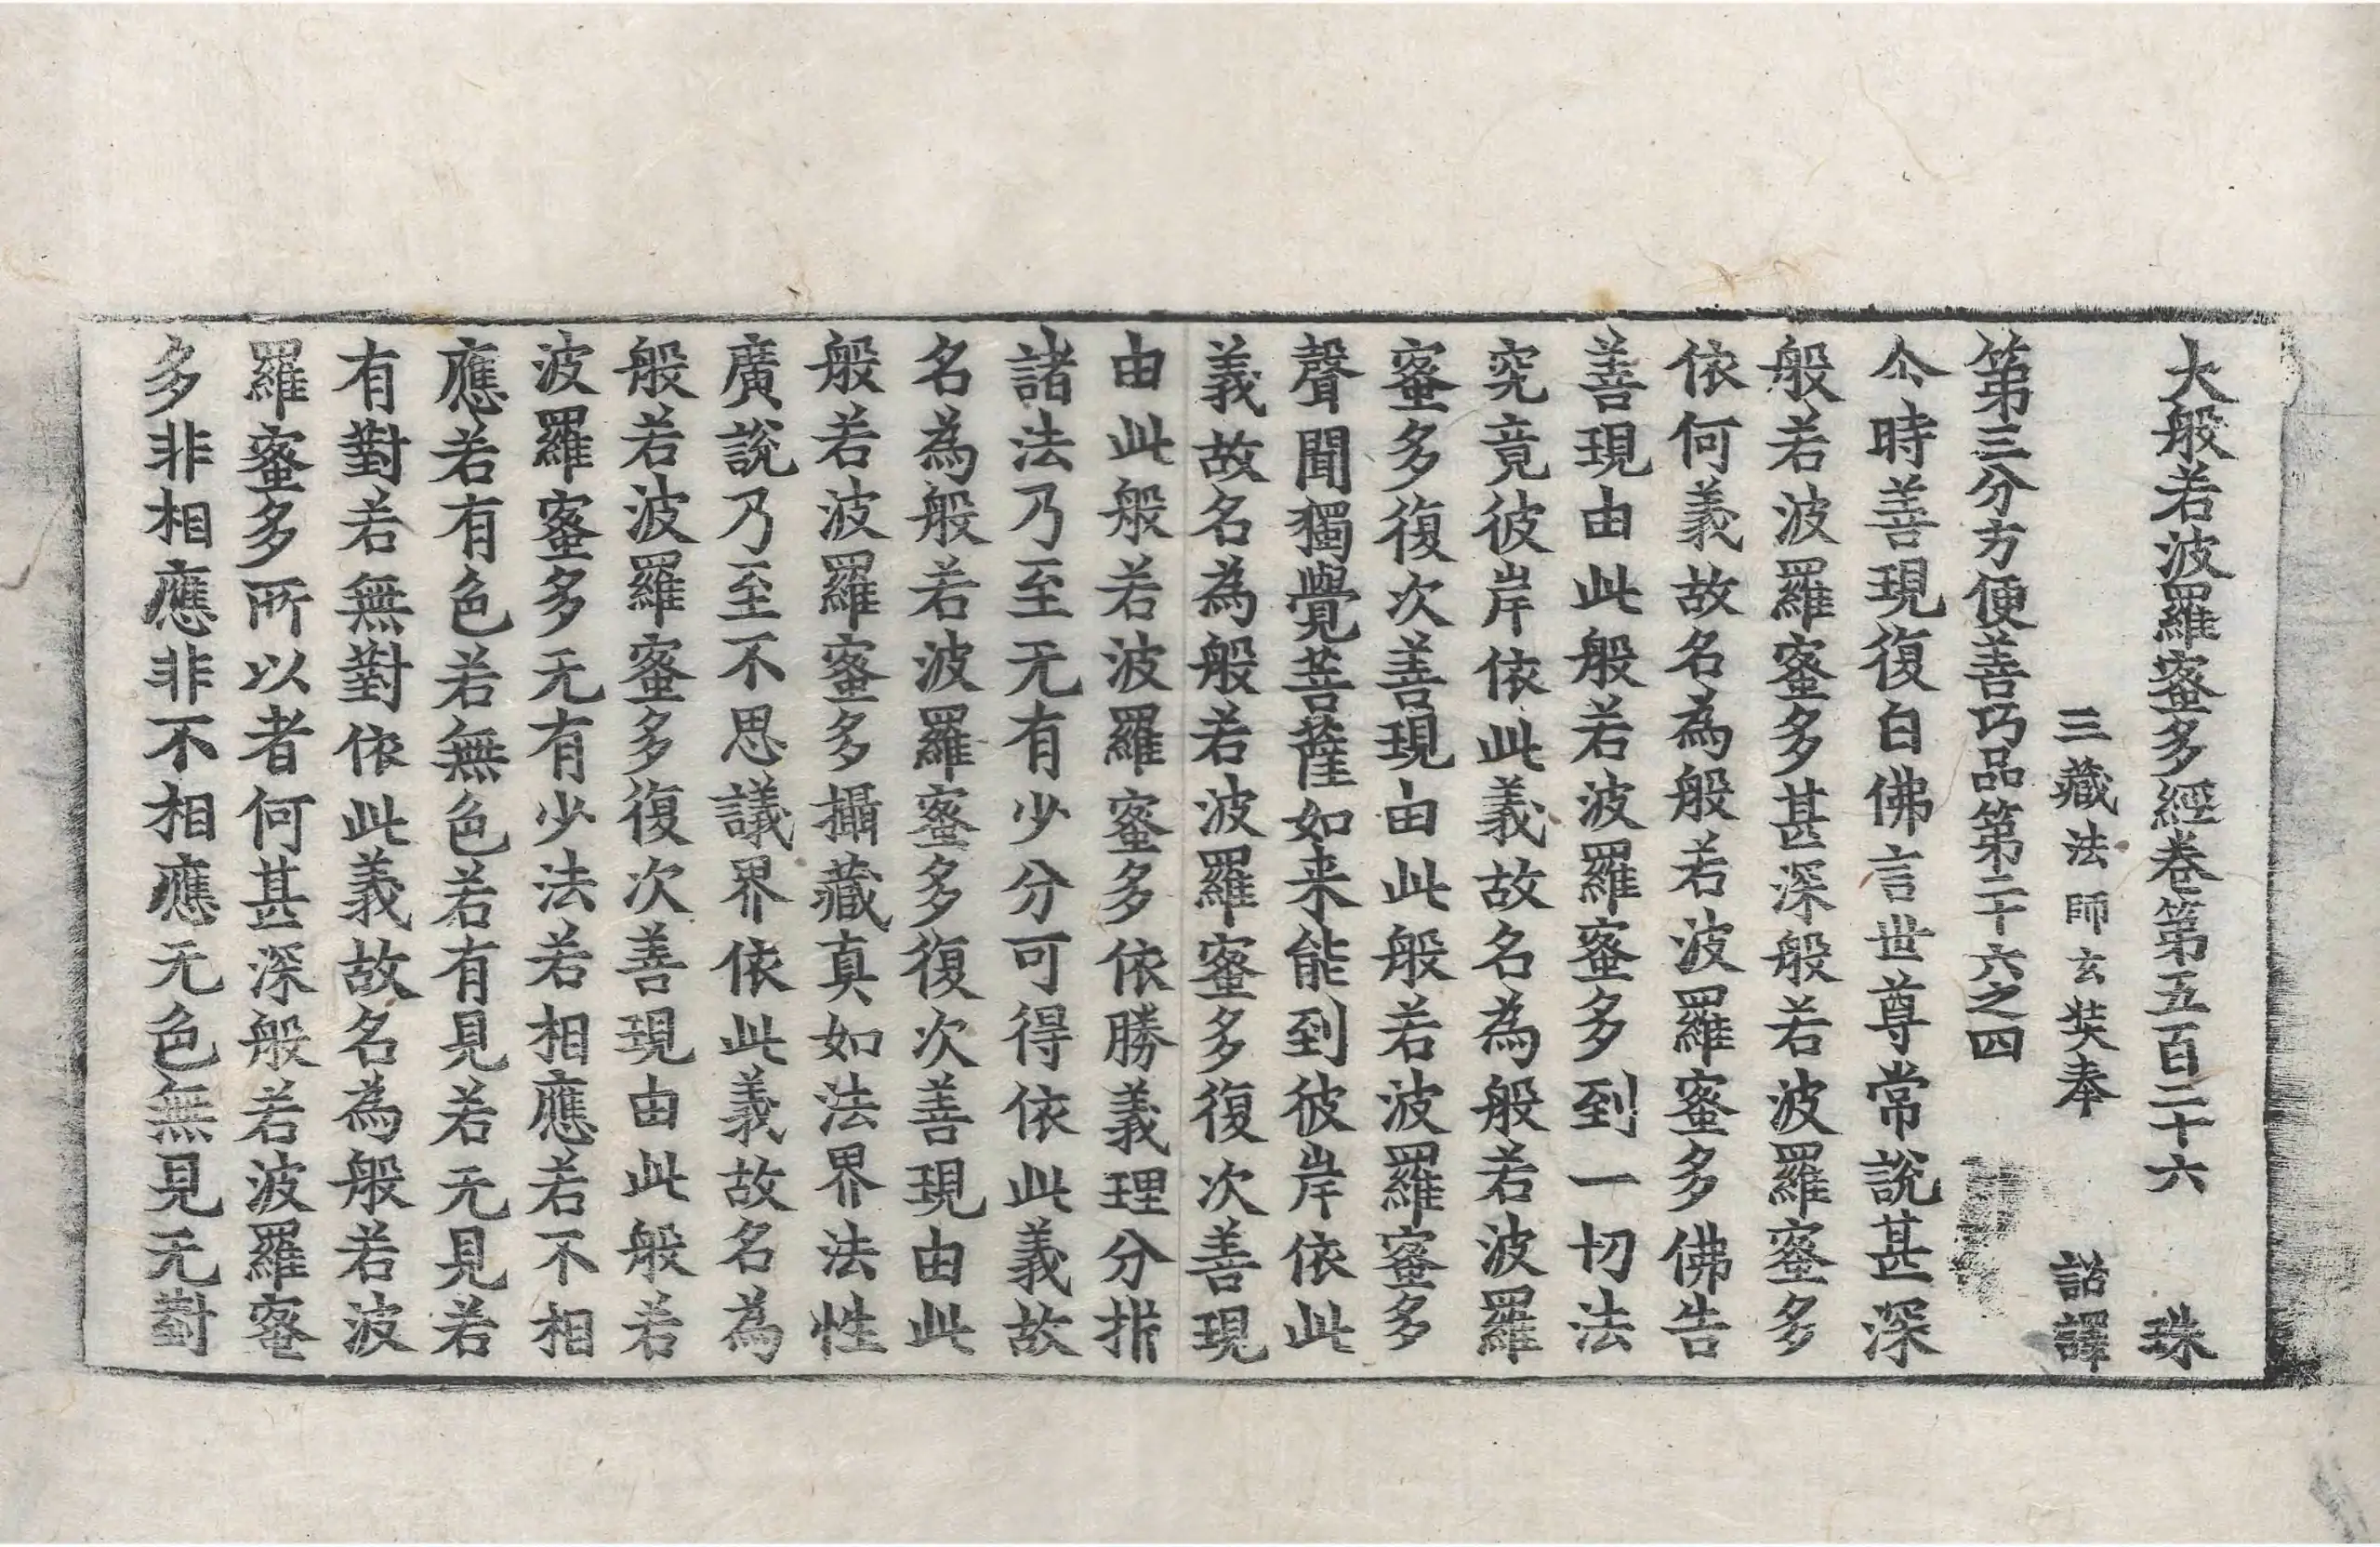 大般若波羅蜜多經卷第五百二十六 珠
三藏法師玄奘奉 詔譯
第三分方便善巧品第二十六之四
尒時善現復白佛言世尊常說甚深
般若波羅蜜多甚深般若波羅蜜多
依何義故名為般若波羅蜜多佛告
善現由此般若波羅蜜多到一切法
究竟彼岸依此義故名為般若波羅
蜜多復次善現由此般若波羅蜜多
聲聞獨覺菩薩如来能到彼岸依此
義故名為般若波羅蜜多復次善現
由此般若波羅蜜多依勝義理分㭊
諸法乃至无有少分可得依此義故
名為般若波羅蜜多復次善現由此
般若波羅蜜多攝藏真如法界法性
廣說乃至不思議界依此義故名為
般若波羅蜜多復次善現由此般若
波羅蜜多无有少法若相應若不相
應若有色若無色若有見若无見若
有對若無對依此義故名為般若波
羅蜜多所以者何甚深般若波羅蜜
多非相應非不相應无色無見无對